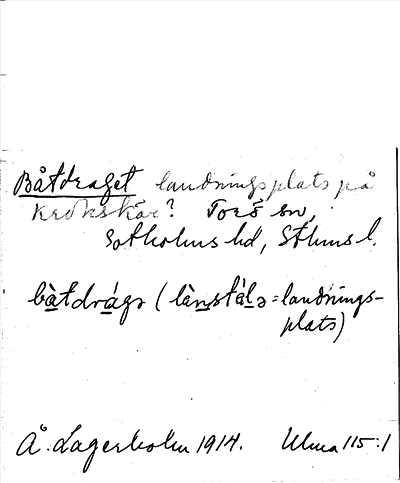 Båtdraget landningsplats på
Krokskär? Torö sn,
Sotholms hd, Sthms l.
båtdrágə (lànstálə = landnings-
plats)
Å. Lagerholm 1914. Ulma 115:1